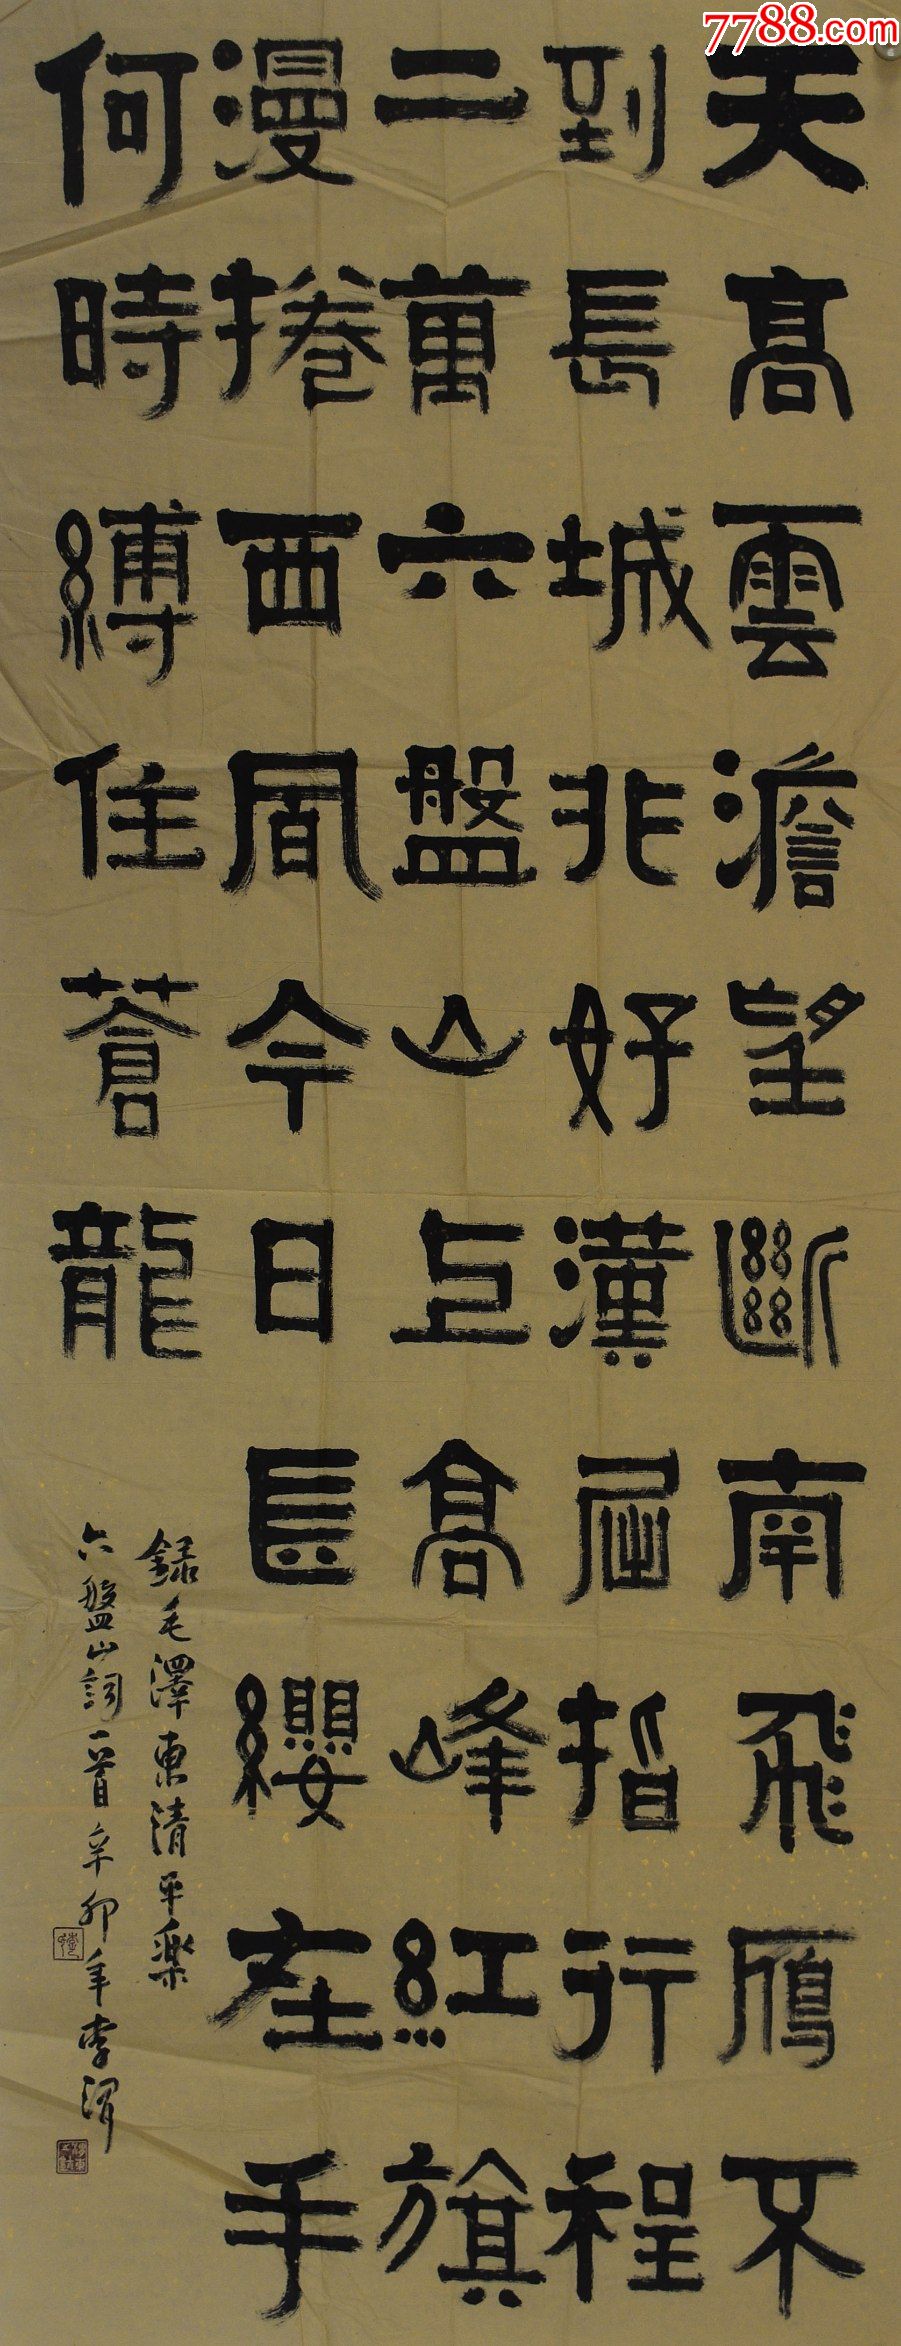 7788.com
天高雲澹望斷南飛雁不
到長城非好漢屈指行程
二萬六盤山上高峰紅旗
漫捲西風今日長纓在手
何時縛住蒼龍
録毛澤東清平樂
六盤山詞一首辛卯年李渭